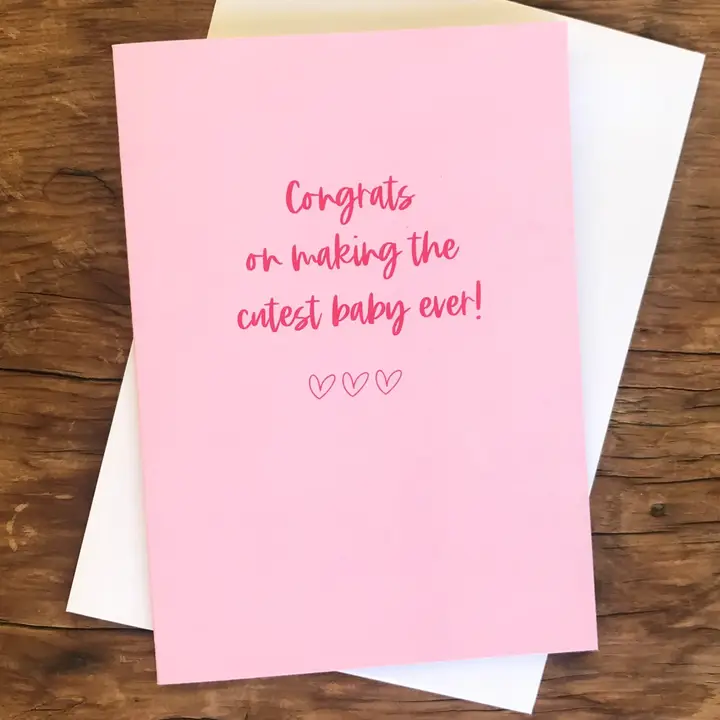 Congrats
on making the
cutest baby ever!